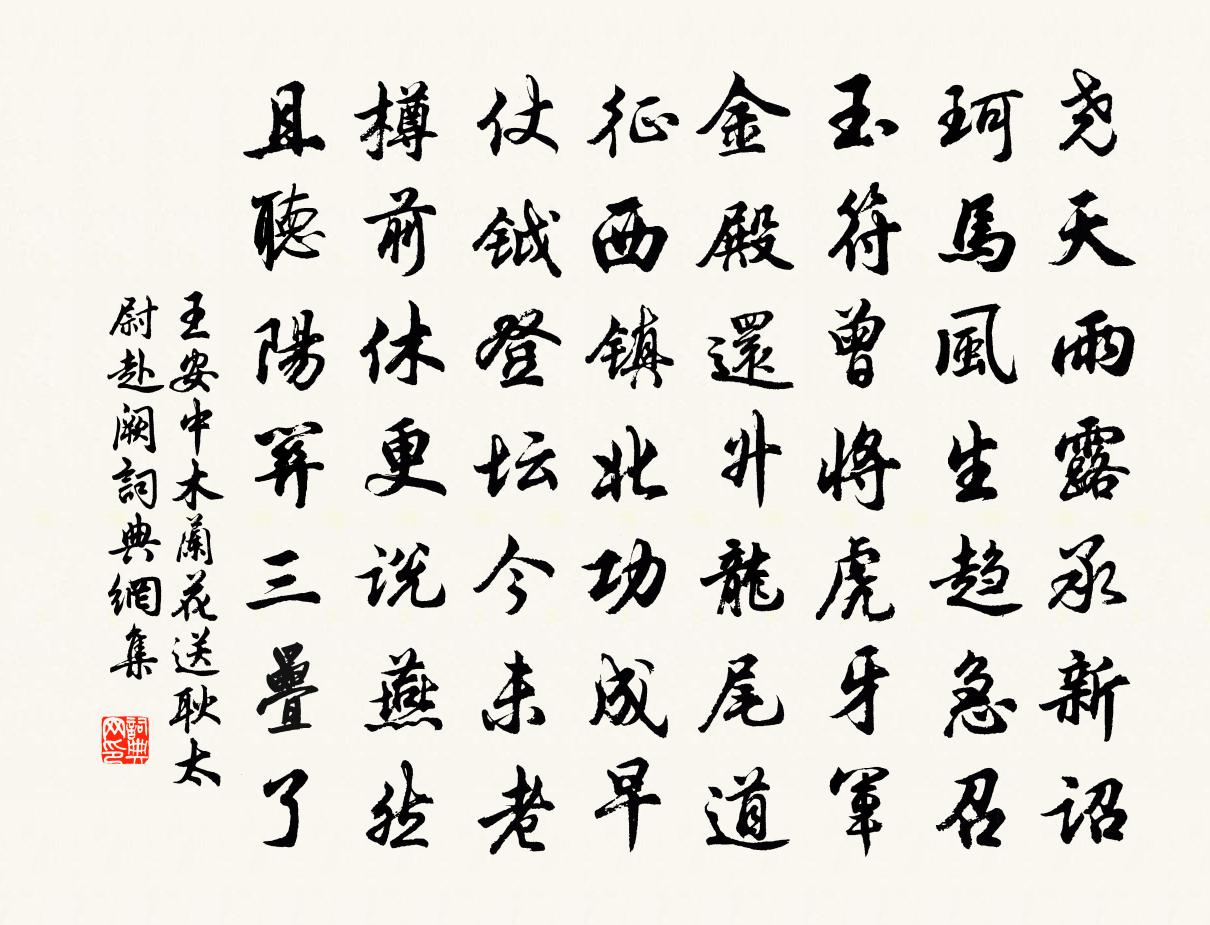 尧天雨露承新诏
珂馬風生趋急召
玉符曾将虎牙軍
金殿還升龍尾道
征西镇北功成早
仗钺登坛今未老
樽前休更说燕然
且聽陽關三疊了
王安中木蘭花送耿太
尉赴阙詞典網集
詞典網印